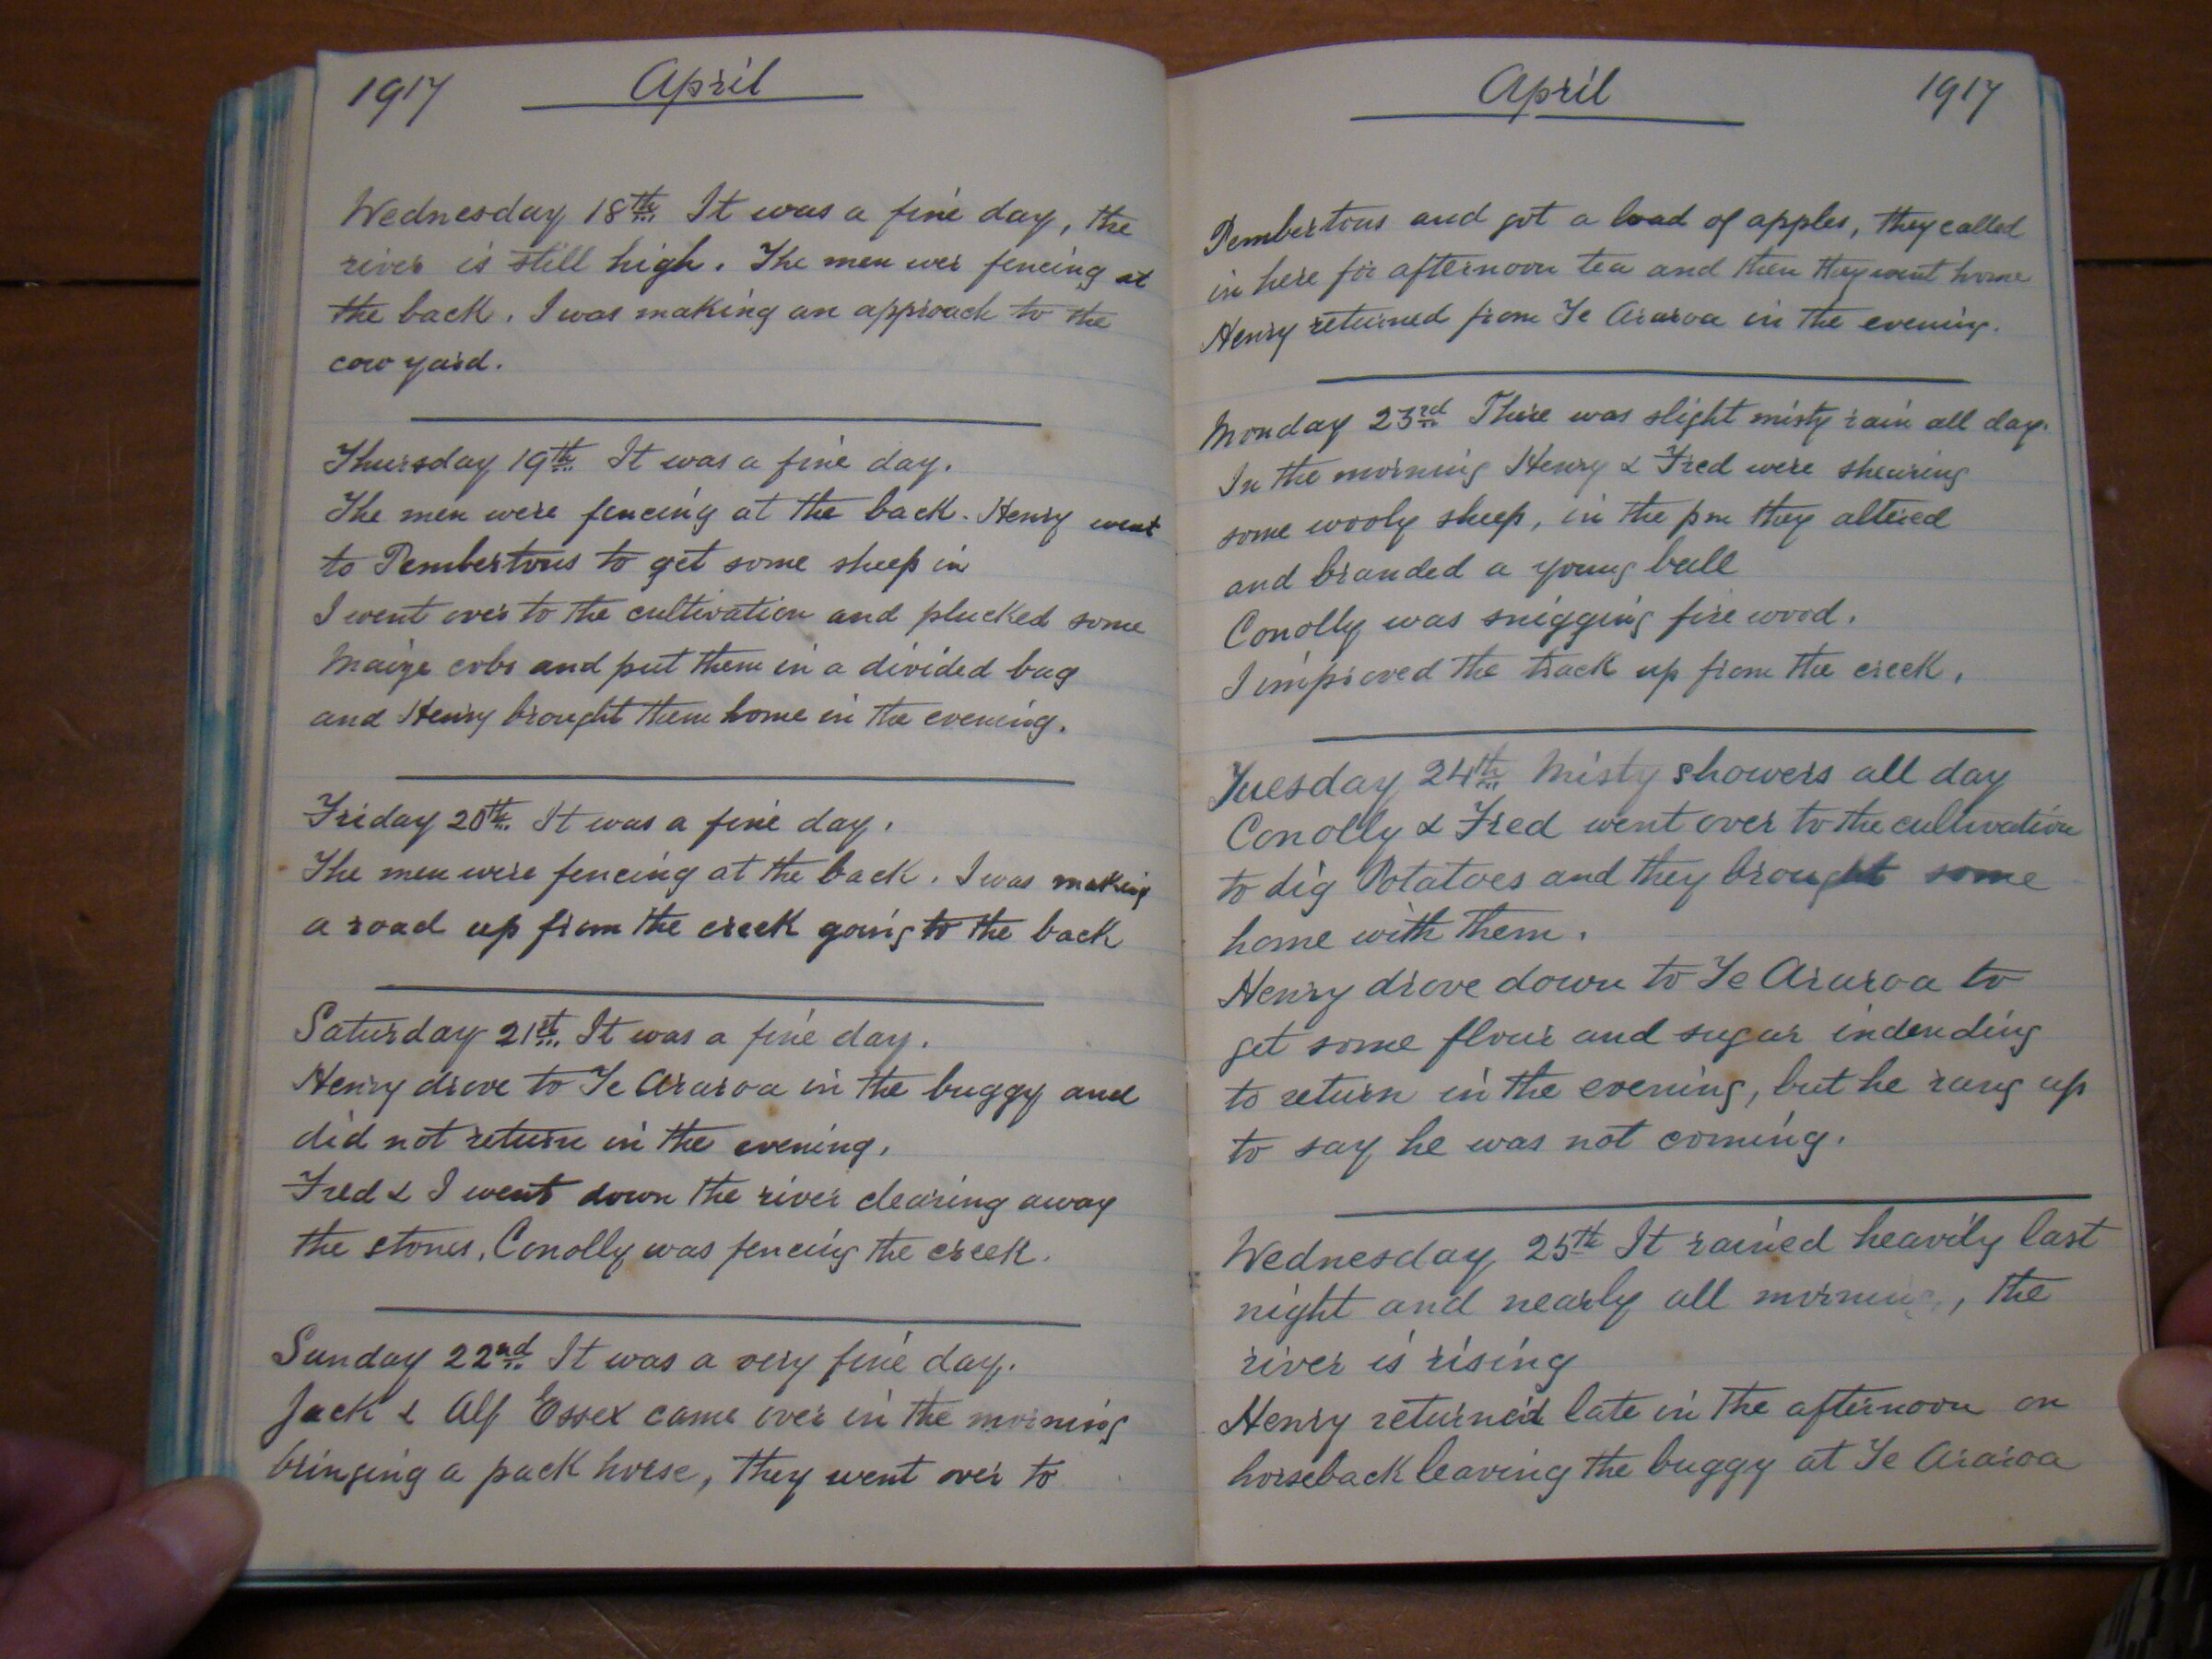 1917 April
Wednesday 18th It was a fine day, the
river is still high. The men wer fencing at
the back. I was making an approach to the
cow yard.
Thursday 19th It was a fine day.
The men were fencing at the back. Henry went
to Pembertons to get some sheep in
I went over to the cultivation and plucked some
Maize cobs and put them in a divided bag
and Henry brought them home in the evening.
Friday 20th It was a fine day.
The men were fencing at the back. I was making
a road up from the creek going to the back
Saturday 21st It was a fine day.
Henry drove to Te Araroa in the buggy and
did not return in the evening.
Fred & I went down the river clearing away
the stones. Conolly was fencing the creek.
Sunday 22nd It was a very fine day.
Jack & Alf Essex came over in the morning
bringing a pack horse, they went over to
April 1917
Pembertons and got a load of apples, they called
in here for afternoon tea and then they went home
Henry returned from Te Araroa in the evening.
Monday 23rd There was slight misty rain all day.
In the morning Henry & Fred were shearing
some wooly sheep, in the pm they altered
and branded a young bull
Conolly was snigging fire wood.
I improved the track up from the creek.
Tuesday 24th Misty showers all day
Conolly & Fred went over to the cultivation
to dig Potatoes and they brought some
home with them.
Henry drove down to Te Araroa to
get some flour and sugar indending
to return in the evening, but he rang up
to say he was not coming.
Wednesday 25th It rained heavily last
night and nearly all morning, the
river is rising
Henry returned late in the afternoon on
horseback leaving the buggy at Te Araroa